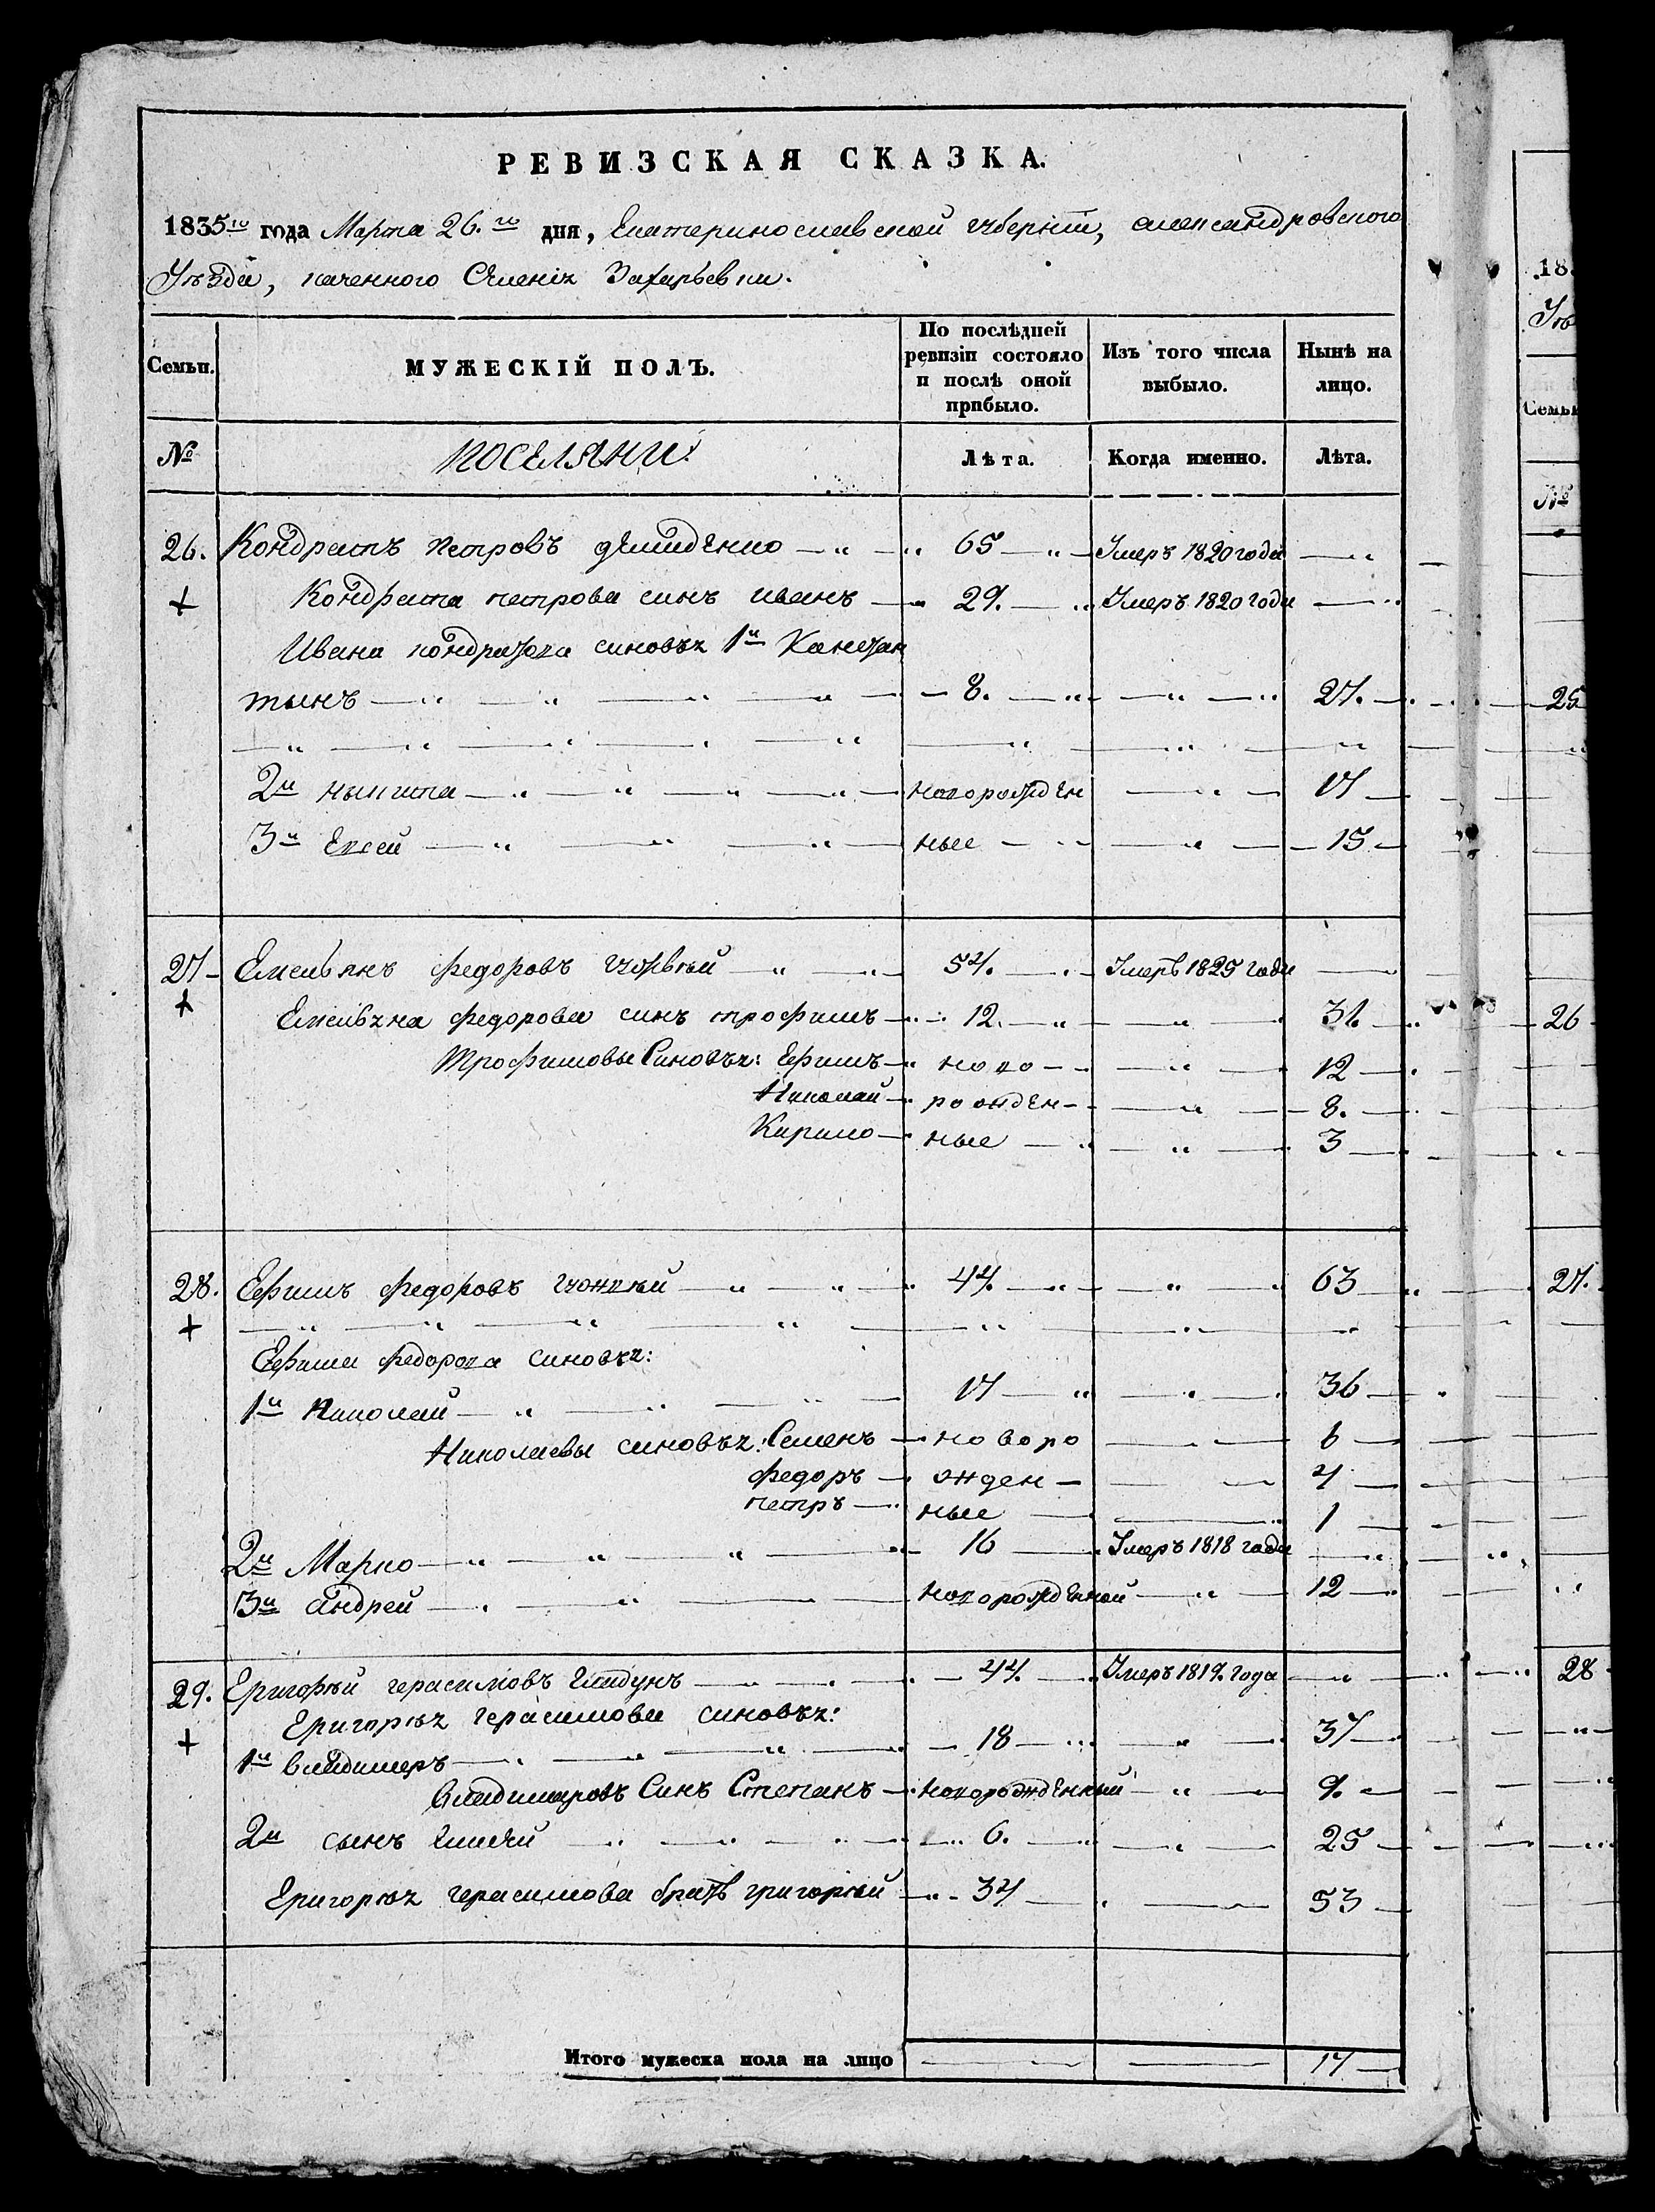 РЕВИЗСКАЯ СКАЗКА.
1835го года Марта 26.го дня, Екатеринославской губернїи, александровского
Уезда, казенного Селения Захарьевки.
Семьи. МУЖЕСКІЙ ПОЛЪ. По послѣдней ревизіи состояло и послѣ оной прибыло. Изъ того числа выбыло. Нынѣ на лицо.
№ поселяни: Лѣта. Когда именно. Лѣта.
26. Кондратъ петровъ демиденко 65 Умеръ 1820 года
+ Кондрата петрова синъ иванъ 29. Умеръ 1820 года
Ивана кондратова синовья 1й Канстан
тынъ 8. 27.
2й никита новорожден 17
3й Евсей ные 15
27 Емельянъ федоровъ 54. Умеръ 1825 года
+ Емельяна федорова синъ трофимъ 12. 31.
Трофимовы Синовья: Ефимъ ново 12
Николай рожден 8.
Кирило ные 3
28. Ефимъ федоровъ 44. 63
+
Ефима федорова синовья:
1й Николай 17 36
Николаевы синовья: Семенъ новоро 6
федоръ жден 4
петръ ные 1
2й Марко 16 Умеръ 1818 года
3й андрей новорожденой 12
29. Григорий герасимовъ 44. Умеръ 1819. года
+ Григория герасимова синовья:
1й владимеръ 18 37
владимировъ Синъ Степанъ новорожденный 9.
2й сынъ 6. 25
Григория герасимова братъ григорий 34 53
Итого мужеска пола на лицо 17
18
Уѣ
Семьи
№
25
26
27.
28